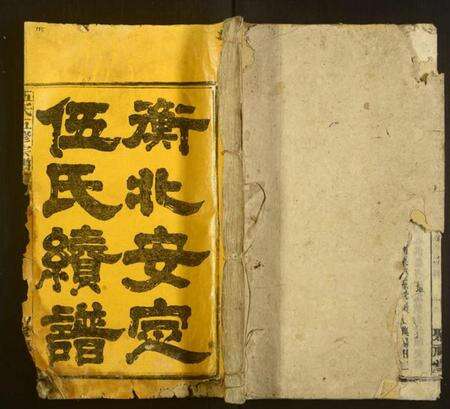 衡北安定
伍氏續譜